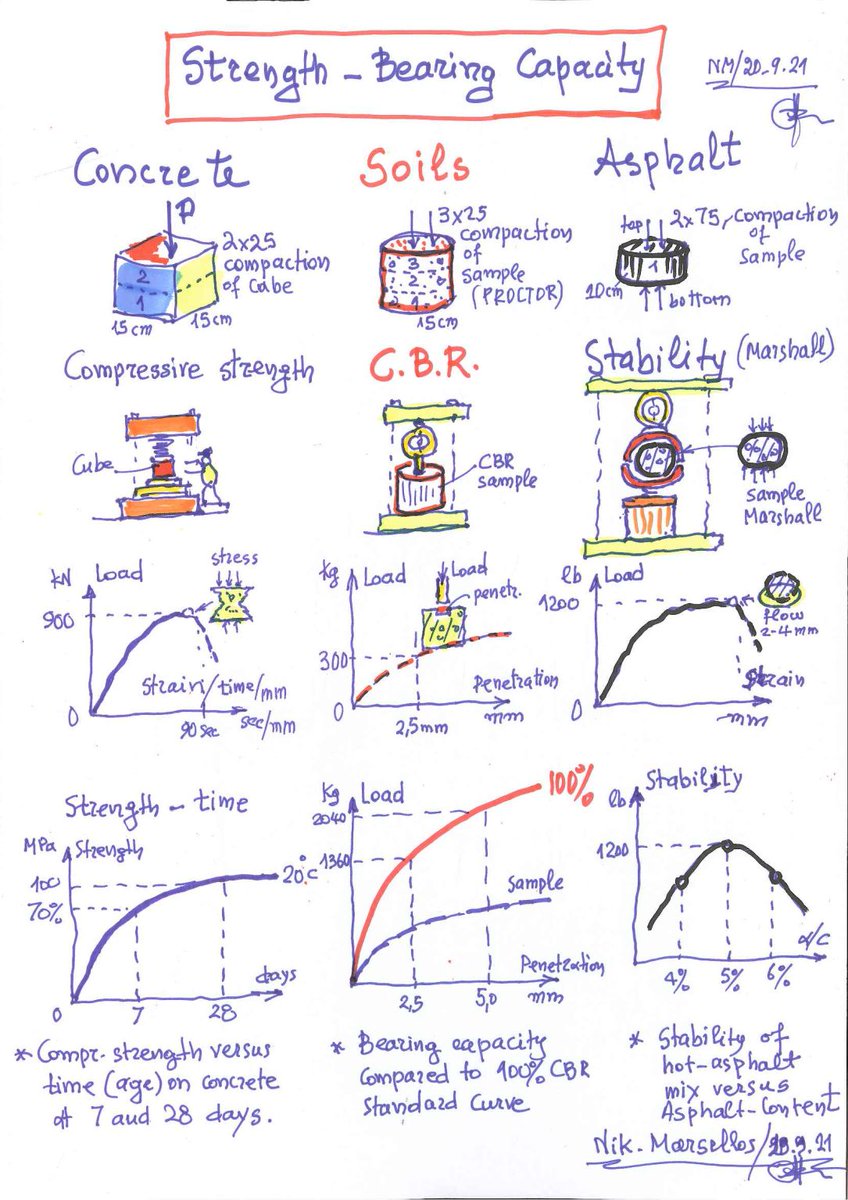 Strength - Bearing Capacity
NM/20.9.21
Concrete
P
2x25
compaction
of Cube
2
1
15cm
15cm
Soils
3x25
compaction
of
sample
(PROCTOR)
3
2
1
15cm
Asphalt
top
2x75, compaction
of
Sample
1
10cm
bottom
Compressive strength
Cube
C.B.R.
CBR
sample
Stability (Marshall)
Sample
Marshall
kN
Load
stress
900
Strain/time/mm
0
90 sec
sec/mm
Kg
Load
Load
penetr.
300
Penetration
0
2,5mm
mm
lb
Load
1200
flow
2-4mm
Strain
0
mm
Strength - time
MPa
Strength
100
70%
20°C
days
0
7
28
Kg
Load
100%
2040
1360
Sample
Penetration
2,5
5,0
mm
Stability
lb
1200
a/c
4%
5%
6%
* Compr. strength versus
time (age) on concrete
at 7 and 28 days.
* Bearing capacity
Compared to 100% CBR
Standard Curve
* Stability of
hot-asphalt
mix versus
Asphalt-Content
Nik. Marsellos/20.9.21